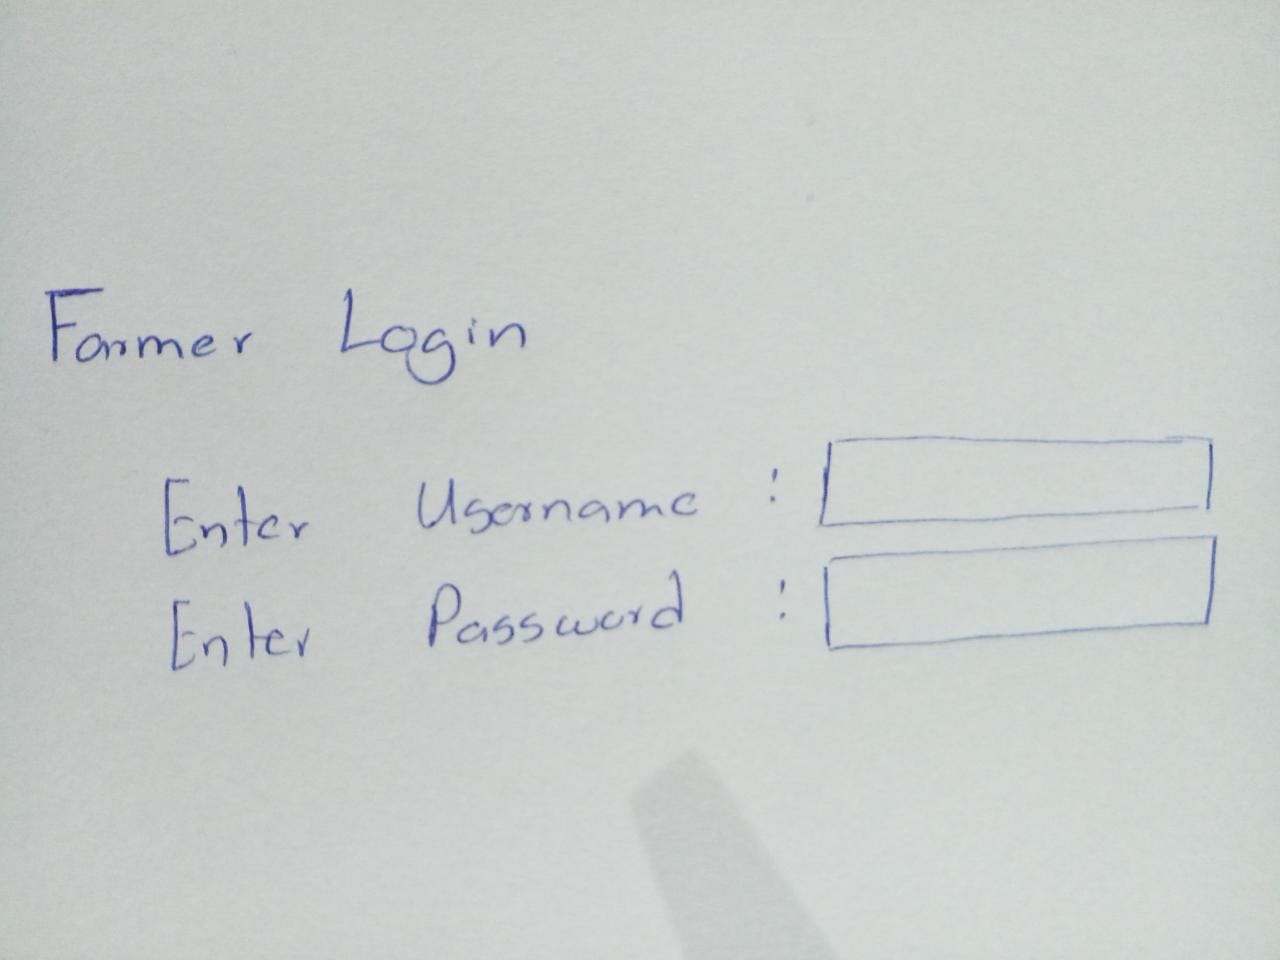 Farmer Login
Enter Username :
Enter Password :